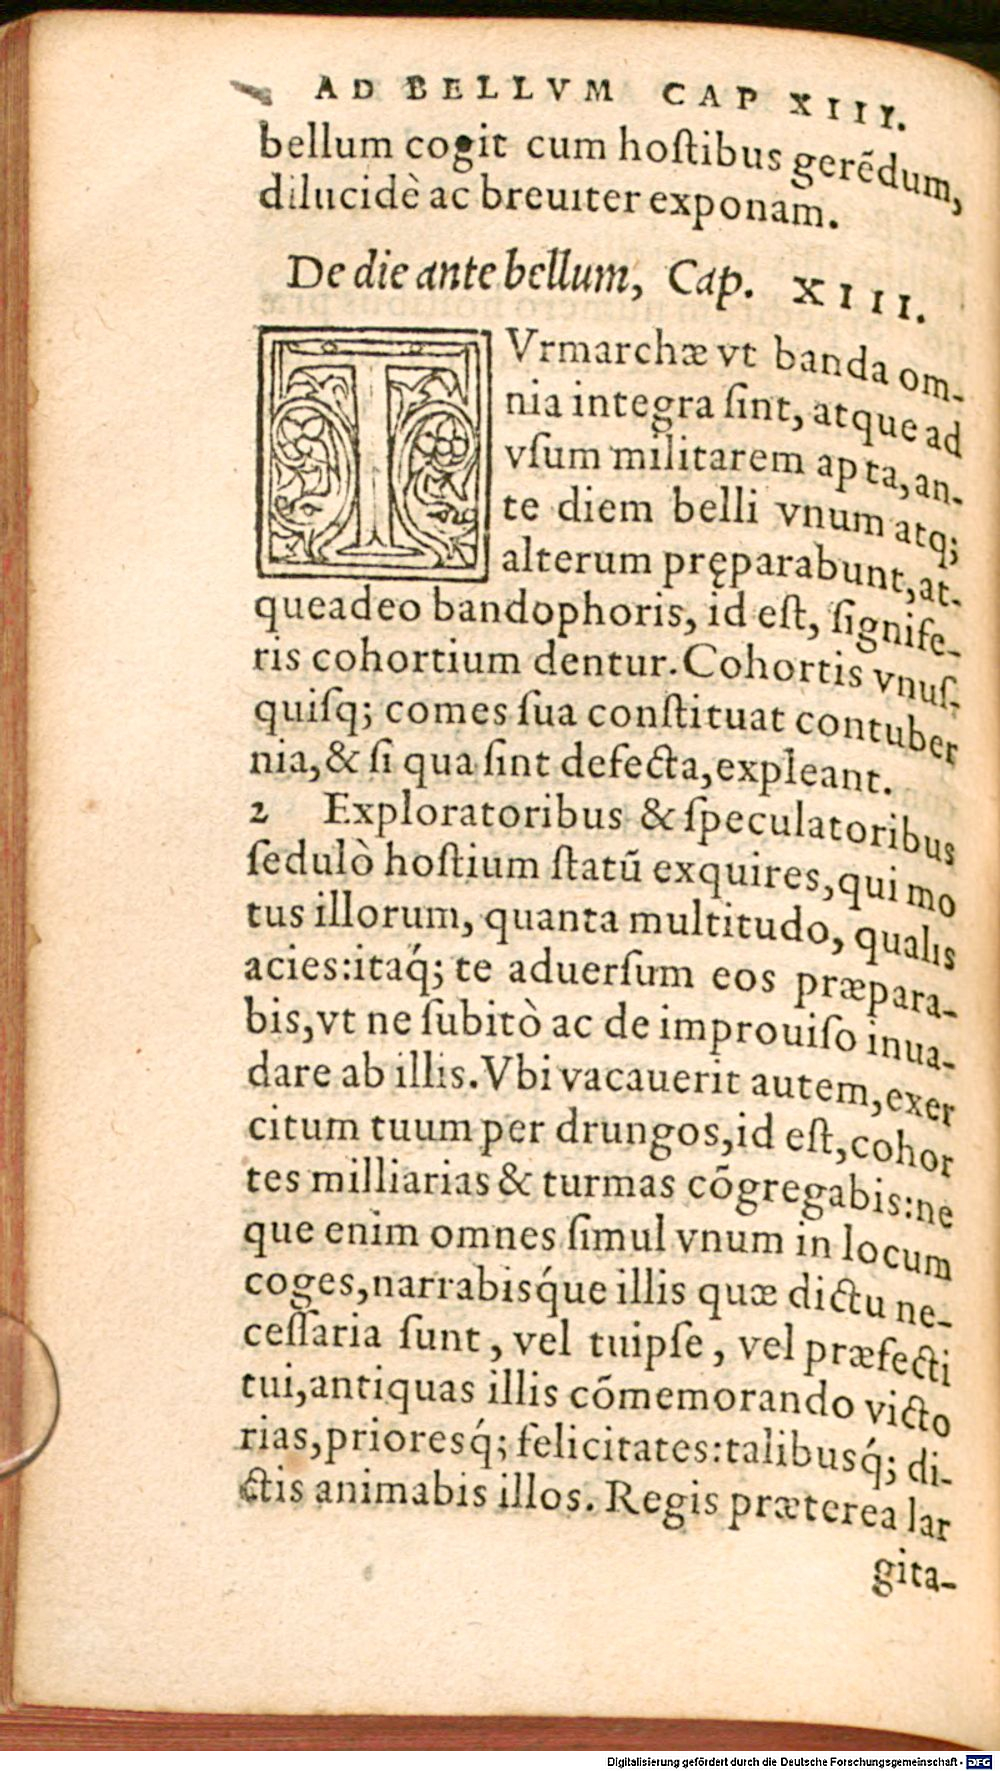 AD BELLVM CAP XIII.
bellum cogit cum hoſtibus gerēdum,
dilucidè ac breuiter exponam.
De die ante bellum, Cap. XIII.
TVrmarchæ vt banda om-
nia integra ſint, atque ad
vſum militarem apta, an-
te diem belli vnum atq;
alterum pręparabunt, at-
queadeo bandophoris, id eſt, ſignife-
ris cohortium dentur. Cohortis vnuſ-
quiſq; comes ſua conſtituat contuber
nia, & ſi qua ſint defecta, expleant.
2 Exploratoribus & ſpeculatoribus
ſedulò hoſtium ſtatū exquires, qui mo
tus illorum, quanta multitudo, qualis
acies: itaq́; te aduerſum eos præpara-
bis, vt ne ſubitò ac de improuiſo inua-
dare ab illis. Vbi vacauerit autem, exer
citum tuum per drungos, id eſt, cohor
tes milliarias & turmas cōgregabis: ne
que enim omnes ſimul vnum in locum
coges, narrabisq́ue illis quæ dictu ne-
ceſſaria ſunt, vel tuipſe, vel præfecti
tui, antiquas illis cōmemorando victo
rias, prioresq́; felicitates: talibusq́; di-
ctis animabis illos. Regis præterea lar
gita-
Digitalisierung gefördert durch die Deutsche Forschungsgemeinschaft - DFG